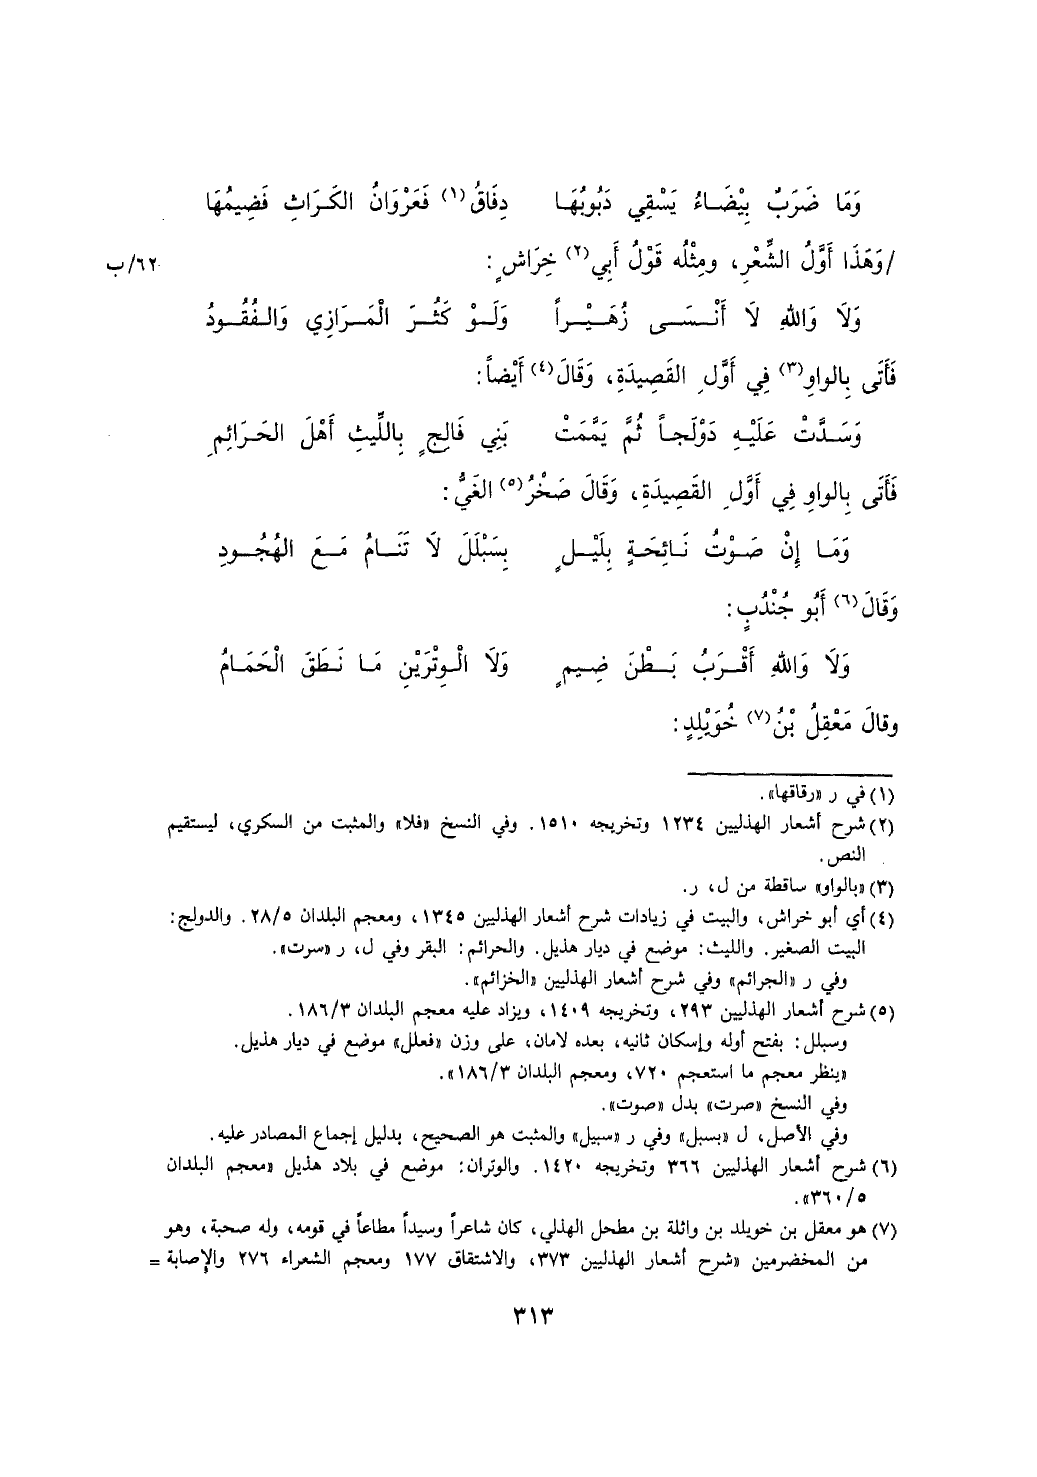 وَمَا ضَرَبٌ بِيْضَـاءُ يَسْقِي دَبُوبُهَـا دِفَاقُ(١) فَعَرْوَانُ الكَـرَاثِ فَضِيمُهَا
/وَهَذَا أَوَّلُ الشِّعْرِ، ومِثْلُه قَوْلُ أَبِي(٢) خِرَاشٍ: ٦٢/ب
وَلَا وَاللهِ لَا أَنْـسَـى زُهَـيْـراً وَلَـوْ كَثُـرَ الْمَـرَازِي وَالـفُقُـودُ
فَأَتَى بِالواوِ(٣) فِي أَوَّلِ القَصِيدَةِ، وَقَالَ(٤) أَيْضاً:
وَسَـدَّتْ عَلَيْـهِ دَوْلَجـاً ثُمَّ يَمَّمَتْ بَنِي فَالِجٍ بِاللِّيثِ أَهْلَ الحَـرَائِمِ
فَأَتَى بِالواوِ فِي أَوَّلِ القَصِيدَةِ، وَقَالَ صَخْرُ(٥) الغَيُّ:
وَمَـا إِنْ صَـوْتُ نَـائِحَـةٍ بِلَيْـلٍ بِسَبْلَلَ لَا تَنَـامُ مَـعَ الهُجُـودِ
وَقَالَ(٦) أَبُو جُنْدُبٍ:
وَلَا وَاللهِ أَقْـرَبُ بَـطْنَ ضِيـمٍ وَلَا الْـوِتْرَيْنِ مَـا نَـطَقَ الْحَمَـامُ
وقالَ مَعْقِلُ بْنُ(٧) خُوَيْلِدٍ:
(١) في ر «رقاقها».
(٢) شرح أشعار الهذليين ١٢٣٤ وتخريجه ١٥١٠. وفي النسخ «فلا» والمثبت من السكري، ليستقيم
النص.
(٣) «بالواو» ساقطة من ل، ر.
(٤) أي أبو خراش، والبيت في زيادات شرح أشعار الهذليين ١٣٤٥، ومعجم البلدان ٢٨/٥. والدولج:
البيت الصغير. والليث: موضع في ديار هذيل. والحرائم: البقر وفي ل، ر «سرت».
وفي ر «الجرائم» وفي شرح أشعار الهذليين «الخزائم».
(٥) شرح أشعار الهذليين ٢٩٣، وتخريجه ١٤٠٩، ويزاد عليه معجم البلدان ١٨٦/٣.
وسبلل: بفتح أوله وإسكان ثانيه، بعده لامان، على وزن «فعلل» موضع في ديار هذيل.
«ينظر معجم ما استعجم ٧٢٠، ومعجم البلدان ١٨٦/٣».
وفي النسخ «صرت» بدل «صوت».
وفي الأصل، ل «بسبل» وفي ر «سبيل» والمثبت هو الصحيح، بدليل إجماع المصادر عليه.
(٦) شرح أشعار الهذليين ٣٦٦ وتخريجه ١٤٢٠. والوتران: موضع في بلاد هذيل «معجم البلدان
٣٦٠/٥».
(٧) هو معقل بن خويلد بن واثلة بن مطحل الهذلي، كان شاعراً وسيداً مطاعاً في قومه، وله صحبة، وهو
من المخضرمين «شرح أشعار الهذليين ٣٧٣، والاشتقاق ١٧٧ ومعجم الشعراء ٢٧٦ والإصابة =
٣١٣